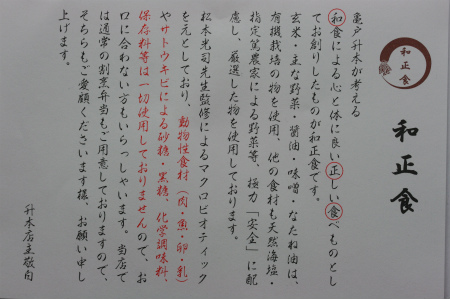 和正食
和正食
亀戸升本が考える
和食による心と体に良い正しい食べものとし
てお創りしたものが和正食です。
玄米・主な野菜・醤油・味噌・なたね油は、
有機栽培の物を使用、他の食材も天然海塩・
指定篤農家による野菜等、極力「安全」に配
慮し、厳選した物を使用しております。
松本光司先生監修によるマクロビオティック
を元としており、動物性食材(肉・魚・卵・乳)
やサトウキビによる砂糖・黒糖、化学調味料、
保存料等は一切使用しておりませんので、お
口に合わない方もいらっしゃいます。当店で
は通常の割烹弁当もご用意しておりますので、
そちらもご愛顧くださいます様、お願い申し
上げます。
升本店主敬白